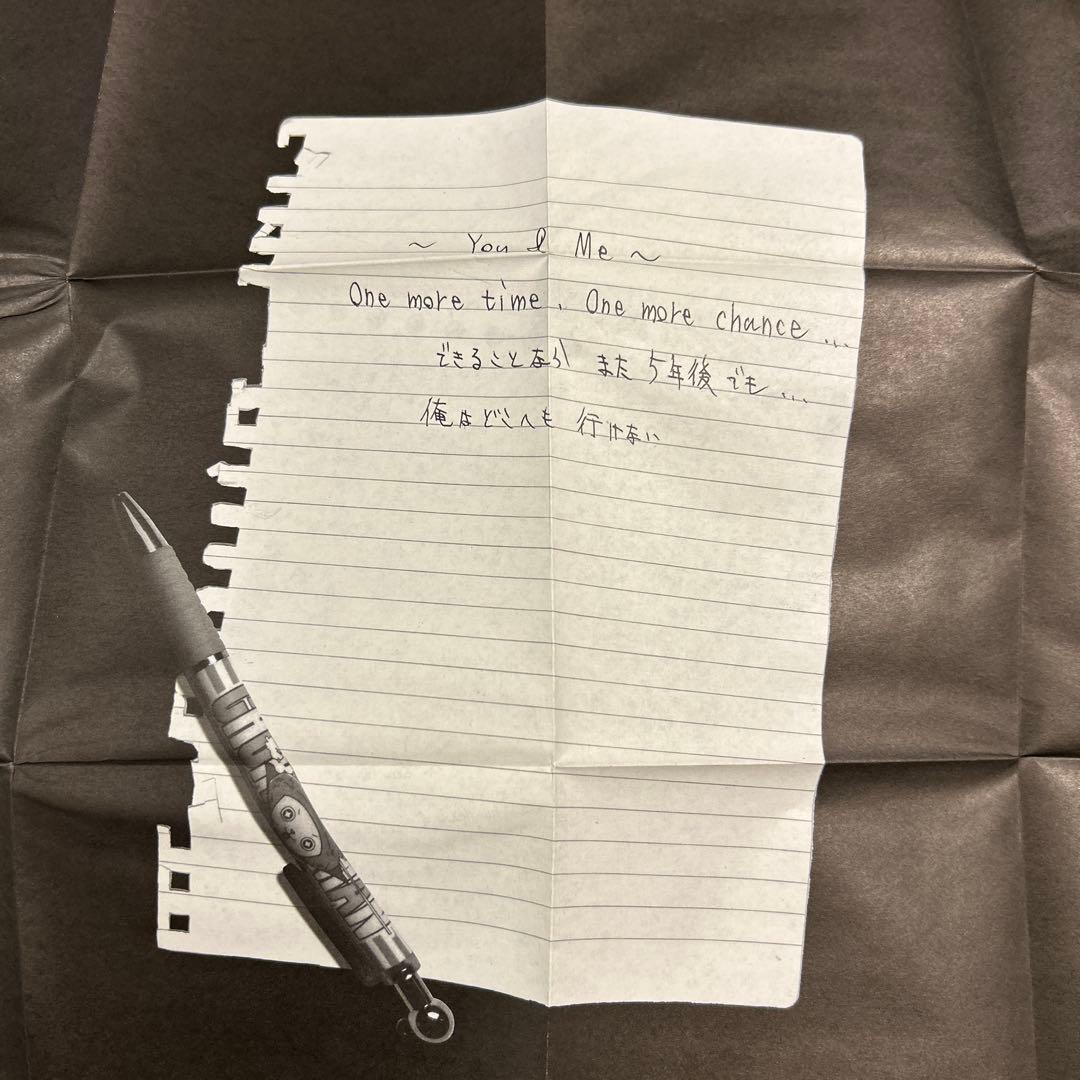 ~ You & Me ~
One more time, One more chance...
できることなら また 5年後でも...
俺はどこへも 行けない